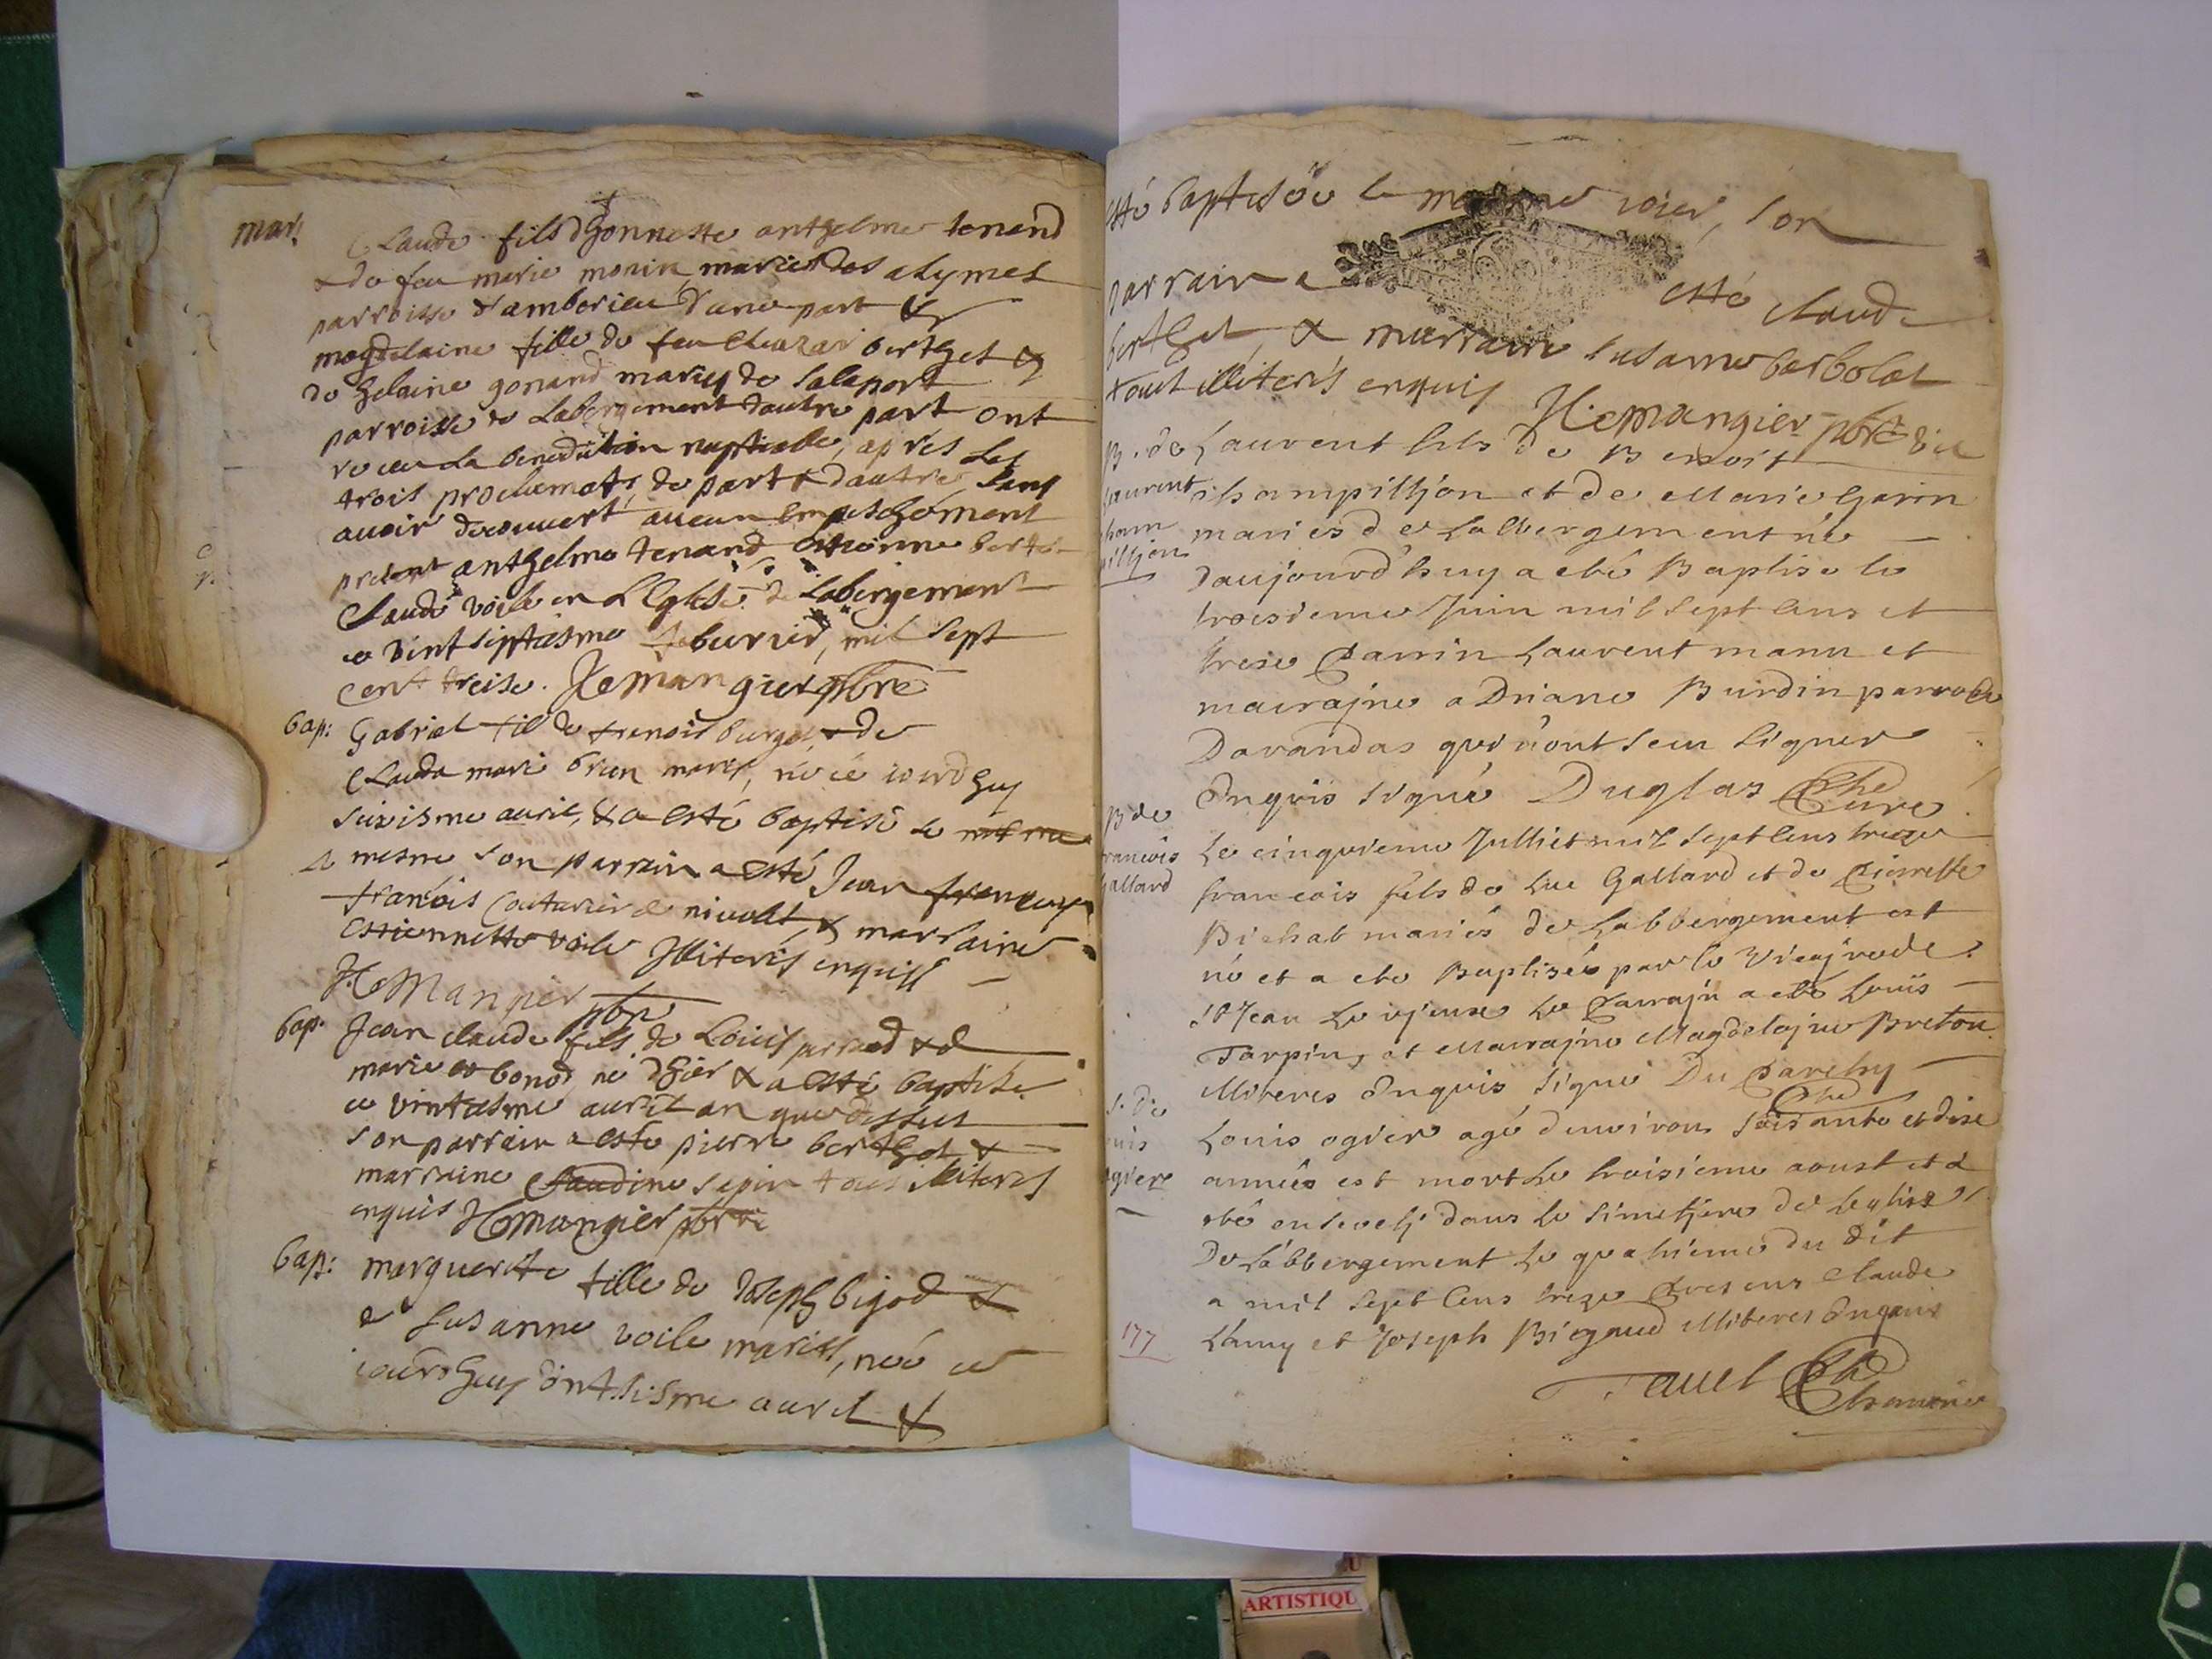 mar:
Claude fils dhonneste anthelme tenend
& de feu marie monin, mariés des alymes
parroisse d'amberieu d'une part &
magdelaine fille de feu eleazar berthet &
de helaine gonand mariés de
parroisse de Labergement dautre part ont
receu la benediction nuptialle, apres les
trois proclamats, de part & dautre, sans
avoir decouvert aucun empeschement
present anthelme tenand
Claude voile en L'Eglise de Labergement
ce vint septiesme feburier, mil sept
cent treise. Hemangier pbre
bap: Gabriel fil de burget & de
Claude marie brun mariés, né ce iourdhuy
sixiesme auril, & a esté baptisé le
le mesme son parrain a esté Jean
françois Couturier de nivolet, & marraine
estiennette voile Illiterés enquis
Hemangier pbre
bap. Jean claude fils de Louis & de
marie bonod né dhier & a esté baptisé
ce vintiesme auril an que dessus
son parrain a esté pierre berthet &
marraine Claudine sepin tous illiterés
enquis Hemangier pbre
bap: marguerite fille de Joseph bigod &
de Susanne voile mariés, née ce
iourdhuy auril &
esté baptisée le mesme iour, son
parrain a esté claude
berthet & marraine susanne barbolat
tous illiterés enquis
Hemangier pbre
B. de Laurent fils de Benoist
Laurent champilljon et de Marie Garin
cham mariés de Labbergement né
pilljon
daujourd'huy a eté Baptisé le
troesieme Juin mil sept cens et
trese Parrin Laurent manu et
mairajne aDriane Burdin parroisse
Davandas qui n'ont seu signer
Enquis signé Duglas Phe
Cure
B de Le cinquieme Julliet mil sept cens treze
francois francois fils de Luc Gallard et de Pierrette
Gallard
Bichat mariés de Labbergement est
né et a eté Baptisée par le vicajre de
st Jean Le vjeux Le Parrajn a eté Louïs
Tarpin, et Mairajne Magdelajne Breton
Illiteres Enquis signé Du Parchy
Phe
S. de Louis ogier agé d'environ soisante et dise
Louis années est mort Le troisieme aoust et a
ogiere
eté ensevelj dans le simetjere de Leglise
De Labbergement Le quatrieme du dit
a mil sept cens treze Presens Claude
177 Lamy et Joseph Bigaud Illiteres Enquis
Tavel Phe
Chanoine
ARTISTIQU